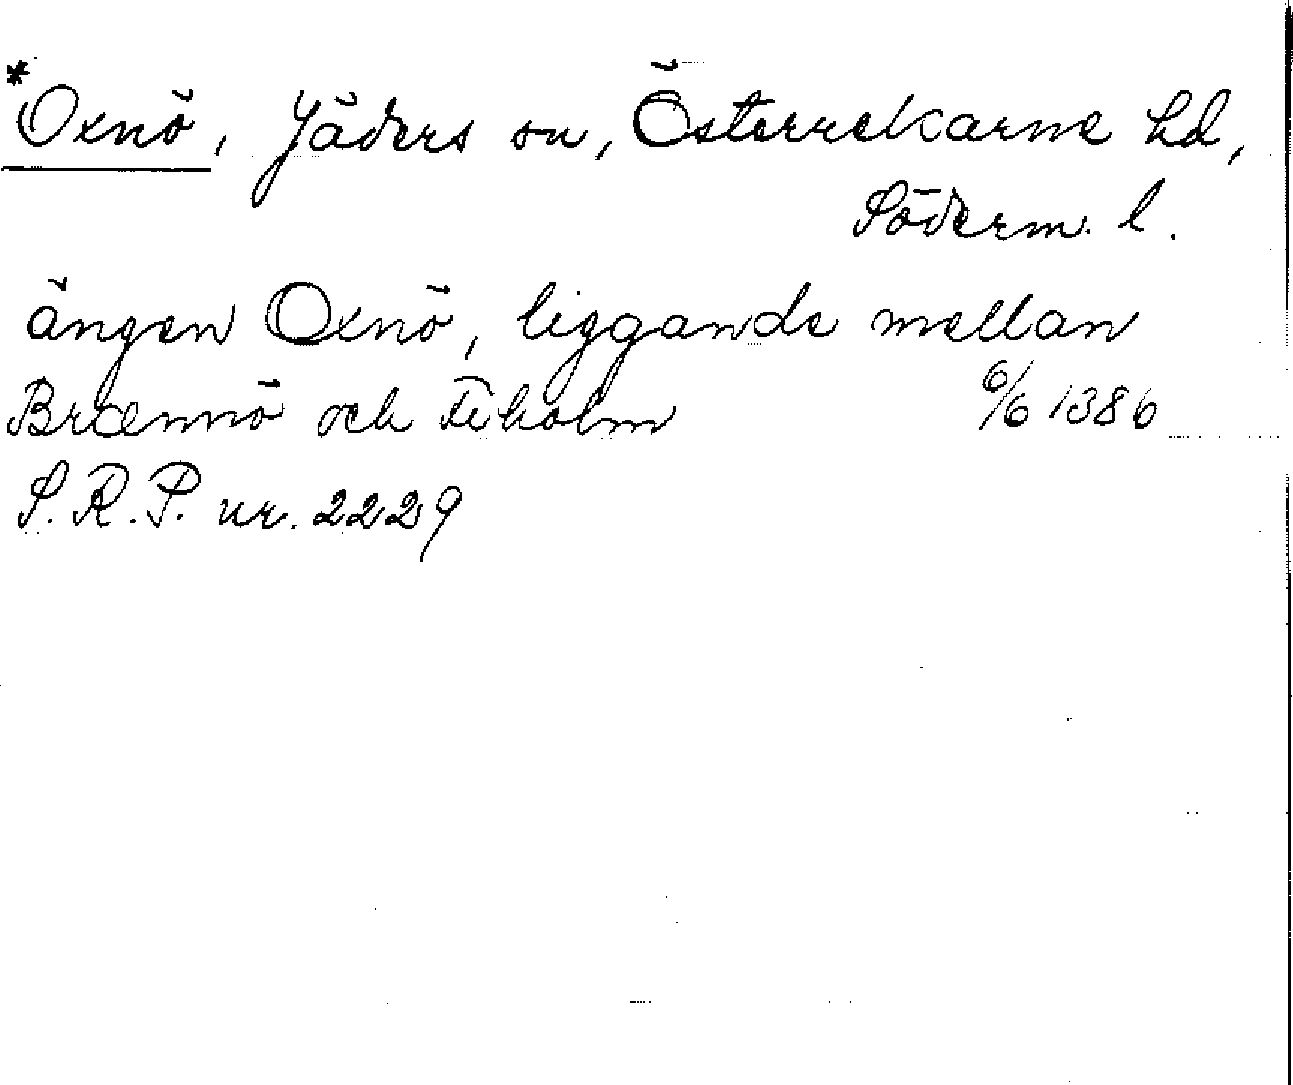 *Oxnö, Jäders sn, Österrekarne hd,
Söderm. l.
ängen Oxnö, liggande mellan
Brænnö och Fiholm 6/6 1386
S.R.P. nr. 2229